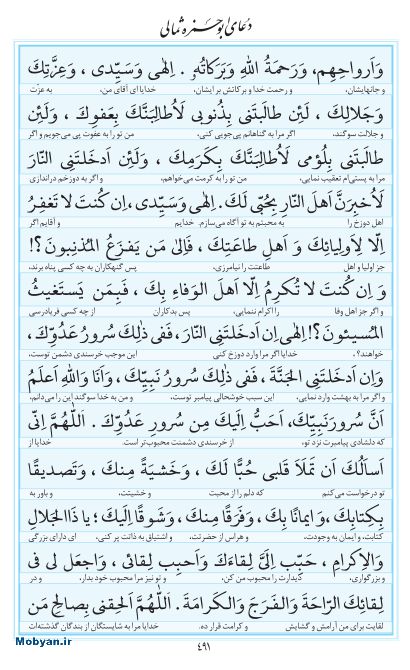 دعای ابوحمزه ثمالی
وَاَرواحِهِم، وَرَحمَةُ اللهِ وَبَرَکاتُهُ. اِلٰهی وَسَیِّدی، وَعِزَّتِکَ
و جانهایشان، و رحمت خدا و برکاتش بر ایشان، خدایا ای آقای من، به عزّت
وَجَلالِکَ، لَئِن طالَبتَنی بِذُنوبی لَاُطالِبَنَّکَ بِعَفوِکَ، وَلَئِن
و جلالت سوگند، اگر مرا به گناهانم پی‌جویی کنی، من تو را به عفوت پی می‌جویم و اگر
طالَبتَنی بِلُؤمی لَاُطالِبَنَّکَ بِکَرَمِکَ، وَلَئِن اَدخَلتَنِی النّارَ
مرا به پستی‌ام تعقیب نمایی، من تو را به کرمت می‌خواهم، و اگر به دوزخم دراندازی
لَاُخبِرَنَّ اَهلَ النّارِ بِحُبّی لَکَ. اِلٰهی وَسَیِّدی، اِن کُنتَ لا تَغفِرُ
اهل دوزخ را به محبتم به تو آگاه می‌سازم. خدایم و آقایم اگر
اِلّا لِاَولِیائِکَ وَ اَهلِ طاعَتِکَ، فَاِلیٰ مَن یَفزَعُ المُذنِبونَ؟!
جز اولیا و اهل طاعتت را نیامرزی، پس گنهکاران به چه کسی پناه برند،
وَ اِن کُنتَ لا تُکرِمُ اِلّا اَهلَ الوَفاءِ بِکَ، فَبِمَن یَستَغیثُ
و اگر جز اهل وفا را اکرام ننمایی، پس بدکاران از چه کسی فریادرسی
المُسیئونَ؟! اِلٰهی اِن اَدخَلتَنِی النّارَ، فَفی ذٰلِکَ سُرورُ عَدُوِّکَ،
خواهند؟، خدایا اگر مرا وارد دوزخ کنی این موجب خرسندی دشمن توست،
وَاِن اَدخَلتَنِی الجَنَّةَ، فَفی ذٰلِکَ سُرورُ نَبِیِّکَ، وَاَنَا وَاللهِ اَعلَمُ
و اگر مرا به بهشت وارد نمایی، این سبب خوشحالی پیامبر توست، و من به خدا سوگند این را می‌دانم،
اَنَّ سُرورَ نَبِیِّکَ، اَحَبُّ اِلَیکَ مِن سُرورِ عَدُوِّکَ. اَللّٰهُمَّ اِنّی
که دلشادی پیامبرت نزد تو، از خرسندی دشمنت محبوب‌تر است. خدایا از
اَسأَلُکَ اَن تَملَأَ قَلبی حُبًّا لَکَ، وَخَشیَةً مِنکَ، وَتَصدیقًا
تو درخواست می‌کنم که دلم را از محبت و خشیتت، و باور به
بِکِتابِکَ، وَایمانًا بِکَ، وَفَرَقًا مِنکَ، وَشَوقًا اِلَیکَ؛ یا ذَا الجَلالِ
کتابت، و ایمان به وجودت، و هراس از حضرتت، و اشتیاق به ذاتت پر کنی، ای دارای بزرگی
وَالاِکرامِ، حَبِّب اِلَیَّ لِقاءَکَ وَاَحبِب لِقائی، وَاجعَل لی فی
و بزرگواری، دیدارت را محبوب من کن، و تو نیز مرا محبوب خود بدار، و در
لِقائِکَ الرّاحَةَ وَالفَرَجَ وَالکَرامَةَ. اَللّٰهُمَّ اَلحِقنی بِصالِحِ مَن
لقایت برای من آرامش و گشایش و کرامت قرار ده. خدایا مرا به شایستگان از بندگان گذشته‌ات
۴۹۱
Mobyan.ir